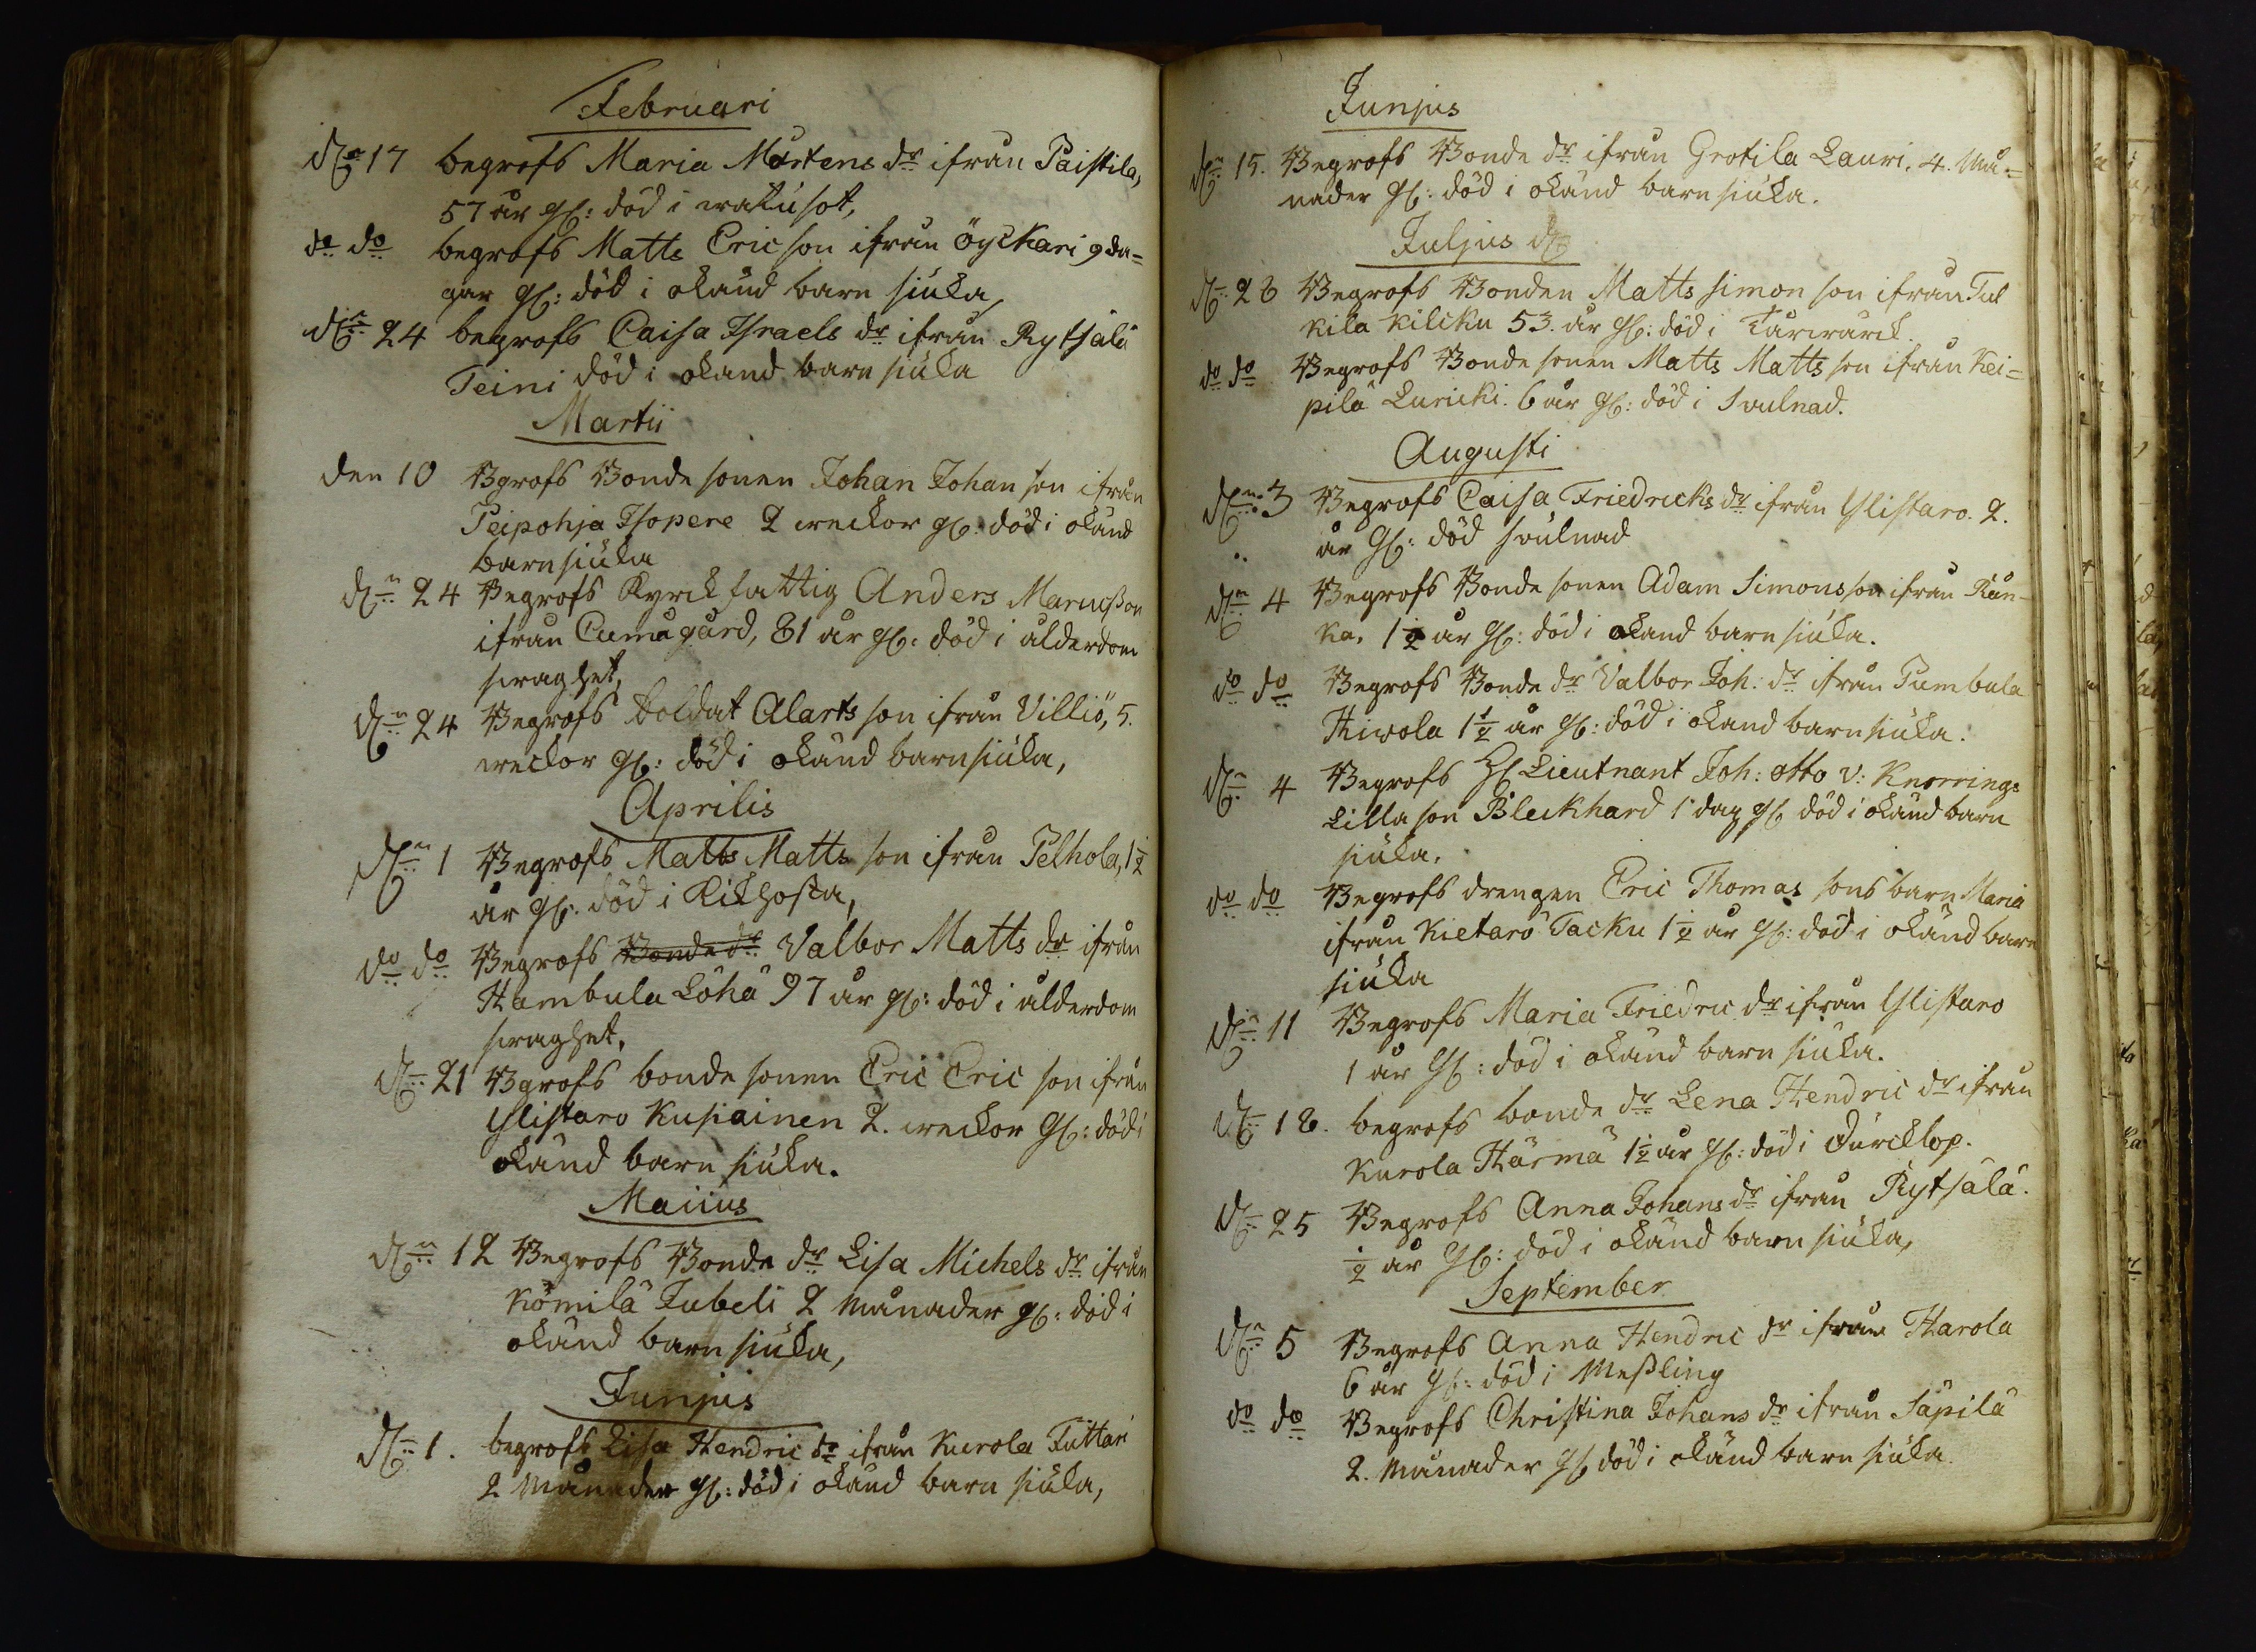 Februari
dn 17 begrofs Maria Mårtens dr ifrån Paistila,
57 år gl: död i watusot,
do do begrofs Matts Ericson ifrån Öyckari 9 da=
gar gl: död i okänd barn siuka,
dn 24 begrofs Caisa Israels dr ifrån Rytsälä
Teini död i okänd barn siuka
Martii
den 10 Bgrofs Bonde sonen Johan Johan son ifrån
Peipohja Isopere 2 weckor gl: död i okänd
barnsiuka
dn 24 Begrofs Kyrckfattig Anders Marcusson
ifrån Cumågård, 81 år gl: död i ålderdom
swaghet,
dn 24 Begrofs Soldat Alarts son ifrån Villiö, 5.
weckor gl: död i okänd barnsiuka,
Aprilis
dn 1 Begrofs Matts Matts son ifrån Pelhola, 1 1/2
år gl: död i Kikhosta,
do do Begrofs Bonde dr Valbor Matts dr ifrån
Hambula Löhä 97 år gl: död i ålderdom
swaghet,
dn 21 Bgrofs bonde sonen Eric Eric son ifrån
Ylistaro Kusiainen 2. weckor gl: död i
okänd barn siuka.
Maiius
dn 12 Begrofs Bonde dr Lisa Michels dr ifrån
Kömilä Jubeli 2 Månader gl: död i
okänd barn siuka,
Junjus
dn 1. begrofs Lisa Hendric dr ifrån Kurola Juttari
2 Månader gl: död i okänd barn siuka,
Junjus
dn 15. Begrofs Bonde dr ifrån Grotila Lauri. 4. Må=
nader gl: död i okänd barn siuka.
Juljus d
dn 28 Begrofs Bonden Matts Simon son ifrån Tul
kila Kilcku 53. år gl: död i
do do Begrofs Bonde sonen Matts Matts son ifrån Kei=
pilä Luricki. 6 år gl: död i Svulnad.
Augusti
dn 3 Begrofs Caisa Friedrichs dr ifrån Ylistaro. 2.
år gl: död svulnad
dn 4 Begrofs Bonde sonen Adam Simonsson ifrån Rån-
ka. 1 1/2 år gl: död i okänd barn siuka.
do do Begrofs Bonde dr Valbor Joh: dr ifrån Pumbula
Hiwola 1 1/2 år gl: död i okänd barn siuka.
dn 4 Begrofs H Lieutnant Joh: Otto v: Knorrings
Lilla son Bleckhard 1 dag gl död i okänd barn
siuka.
do do Begrofs drengen Eric Thomas sons barn Maria
ifrån Kietarö Tacku 1 1/2 år gl: död i okänd barn
siuka
dn 11 Begrofs Maria Friedric dr ifrån Ylistaro
1 år gl: död i okänd barn siuka.
dn 18. begrofs bonde dr Lena Hendric dr ifrån
Kurola Härmä 1 1/2 år gl: död i Durcklop.
dn 25 Begrofs Anna Johans dr ifrån Rytsälä.
1/2 år gl: död i okänd barn siuka,
September
dn 5 Begrofs Anna Hendric dr ifrån Harola
6 år gl: död i Meßling
do do Begrofs Christina Johans dr ifrån Säpilä
2. Månader gl död i okänd barn siuka.